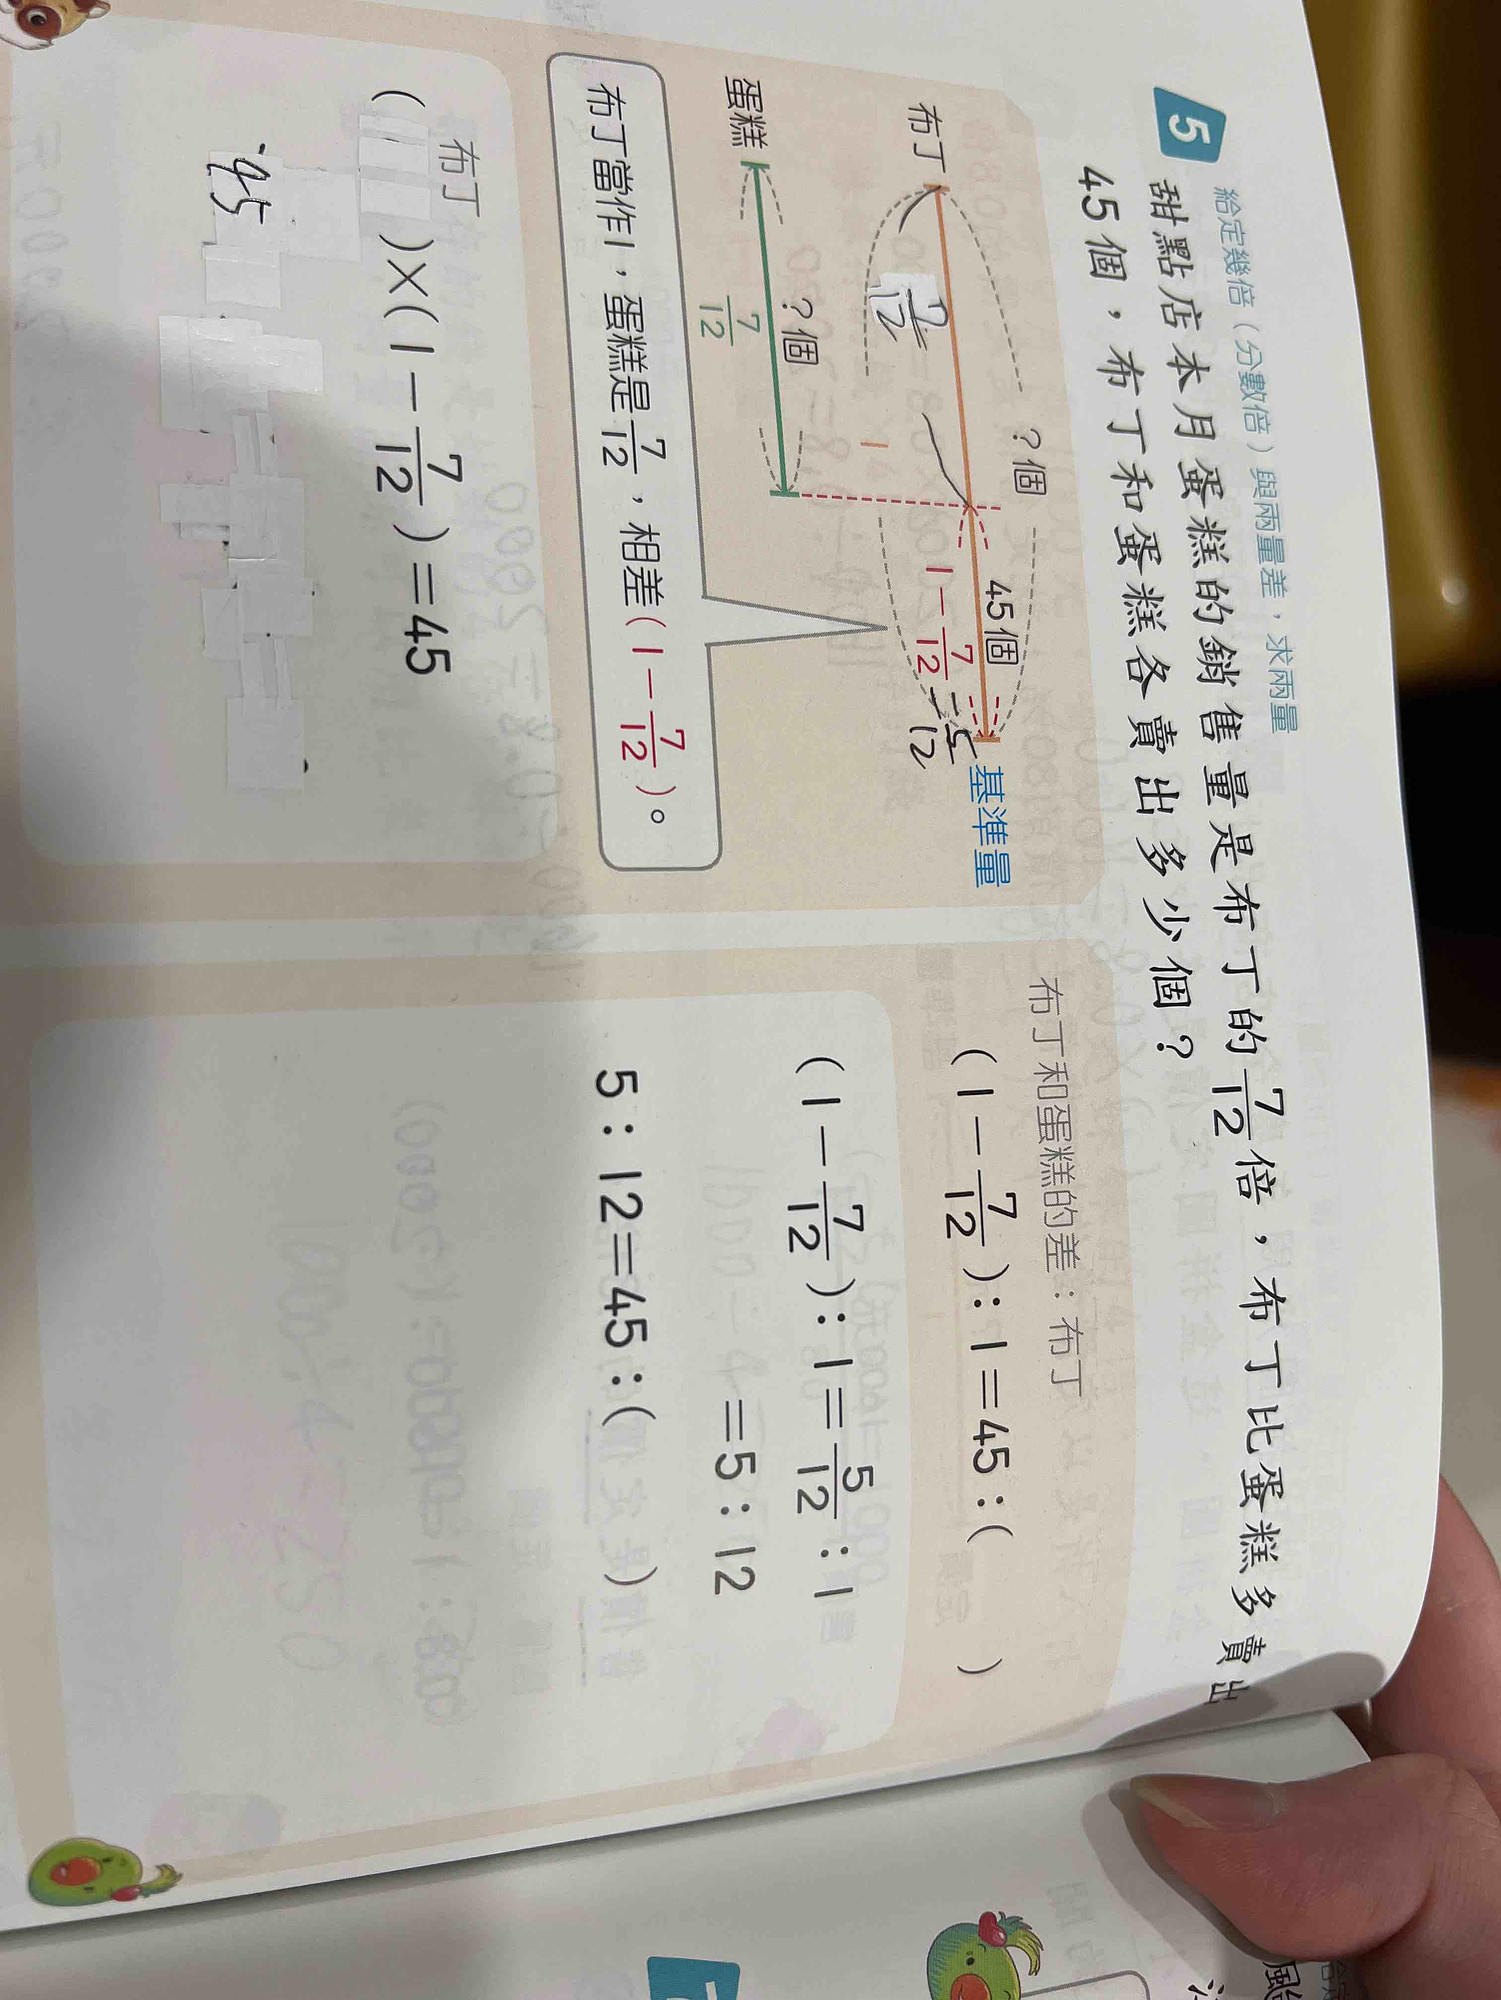 5
給定幾倍（分數倍）與兩量差，求兩量
甜點店本月蛋糕的銷售量是布丁的7/12倍，布丁比蛋糕多賣出
45個，布丁和蛋糕各賣出多少個？
?個
45個
布丁
基準量
1－7/12＝5/12
7/12
1
?個
蛋糕
7/12
布丁當作1，蛋糕是7/12，相差（1－7/12）。
布丁
（ ）×（1－7/12）＝45
45
布丁和蛋糕的差：布丁
（1－7/12）：1＝45：（ ）
（1－7/12）：1＝5/12：1
＝5：12
5：12＝45：（ ）